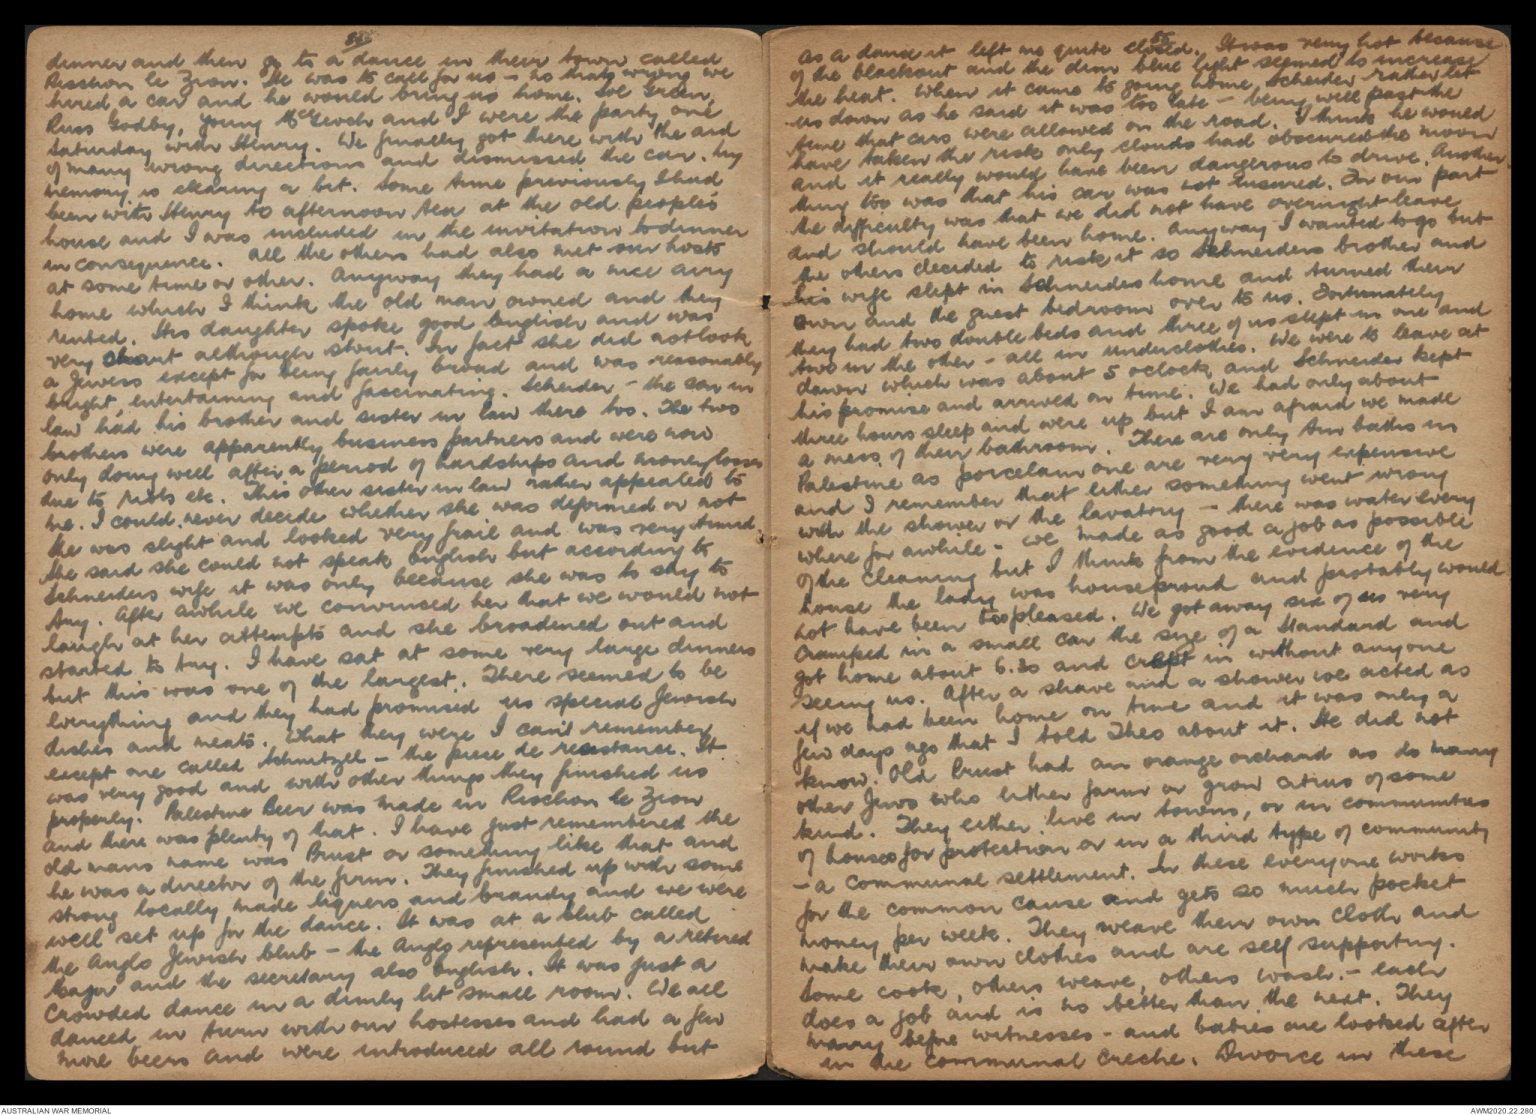 dinner and then go to a dance in their town called
Risshon le Zion. He was to call for us – no that's wrong we
hired a car and he would bring us home. Joe Green,
Russ Godby, young McGeoch and I were the party one
Saturday with Henry. We finally got there with the aid
of many wrong directions and dismissed the car. My
memory is clearing a bit. Some time previously I had
been with Henry to afternoon tea at the old people's
house and I was included in the invitation to dinner
in consequence. All the others had also met our hosts
at some time or other. Anyway they had a nice airy
home which I think the old man owned and they
rented. His daughter spoke good English and was
very smart although stout. In fact she did not look
a Jewess except for being fairly broad and was reasonably
bright, entertaining and fascinating. Scheider – the son in
law had his brother and sister in law there too. The two
brothers were apparently business partners and were now
only doing well after a period of hardships and money losses
due to riots etc. This other sister in law rather appealed to
me. I could never decide whether she was deformed or not
She was slight and looked very frail and was very timid.
She said she could not speak English but according to
Schneiders wife it was only because she was to shy to
try. After awhile we convinced her that we would not
laugh at her attempts and she broadened out and
started to try. I have sat at some very large dinners
but this was one of the largest. There seemed to be
everything and they had promised us special Jewish
dishes and meats. What they were I can't remember
except one called Schnitzel – the piece de resistance. It
was very good and with other things they finished us
properly. Palestine Beer was made in Risshon le Zion
and there was plenty of that. I have just remembered the
old mans name was Brust or something like that and
he was a director of the firm. They finished up with some
strong locally made liquers and brandy and we were
well set up for the dance. It was at a blub called
the Anglo Jewish blub – the Anglo represented by a retired
Major and the secretary also English. It was just a
crowded dance in a dimly lit small room. We all
danced in turn with our hostesses and had a few
more beers and were introduced all round but
55
as a dance it left me quite closed. It was very hot because
of the blackout and the dim blue light seemed to increase
the heat. When it came to going home Scheider rather let
us down as he said it was too late – being well past the
time that cars were allowed on the road. I think he would
have taken the risk only clouds had obscured the moon
and it really would have been dangerous to drive. Another
thing too was that his car was not insured. For our part
the difficulty was that we did not have overnight leave
and should have been home. Anyway I wanted to go but
the others decided to risk it so Schneiders brother and
his wife slept in Schneiders home and turned their
own and the guest bedroom over to us. Fortunately
they had two double beds and three of us slept in one and
two in the other – all in underclothes. We were to leave at
dawn which was about 5 oclock and Schneider kept
his promise and arrived on time. We had only about
three hours sleep and were up but I am afraid we made
a mess of their bathroom. There are only tin baths in
Palestine as porcelain one are very very expensive
and I remember that either something went wrong
with the shower or the lavatory – there was water every
where for awhile – we made as good a job as possible
of the cleaning but I think from the evidence of the
house the lady was houseproud and probably would
not have been too pleased. We got away six of us very
cramped in a small car the size of a Standard and
got home about 6.30 and crept in without anyone
seeing us. After a shave and a shower we acted as
if we had been home on time and it was only a
few days ago that I told Theo about it. He did not
know. Old Brust had an orange orchard as do many
other Jews who either farm or grow citrus of some
kind. They either live in towns, or in communities
of houses for protection or in a third type of community
– a communal settlement. In these everyone works
for the common cause and gets so much pocket
money per week. They weave their own cloth and
make their own clothes and are self supporting.
Some cook, others weave, others wash – each
does a job and is no better than the next. They
marry before witnesses – and babies are looked after
in the communal creche. Divorce in these
AUSTRALIAN WAR MEMORIAL
AWM2020.22.280